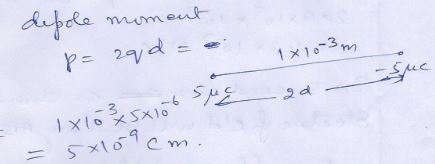 dipole moment
p = 2qd =
1 x 10⁻³ m
5 μc
-5 μc
2d
= 1 x 10⁻³ x 5 x 10⁻⁶
= 5 x 10⁻⁹ cm.